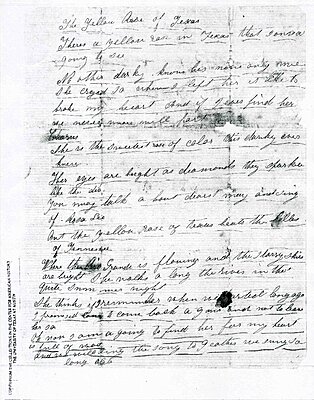 The Yellow Rose of Texas
Theres a yellow rose in Texas that
going to see
No other darky knows her no one only me
She cryed so when I left her it like to
broke my heart and if I ever find her
we never more will part
Chorus
She is the sweetest rose of color this darky ever
knew
Her eyes are bright as diamonds they sparkle
like the dew
You may talk a bout dearest may and sing
of Rosa Lee
But the yellow rose of texas beats the belles
of Tennessee
Where the Rio Grande is flowing and the starry skies
are bright She walks a long the river in the
quite night
She thinks if I remember when we parted long ago
I promised to come back a gain and not to leave
her so
Oh now I am a going to find her for my heart
is full of woe
and the song to gether we sung so
long ago